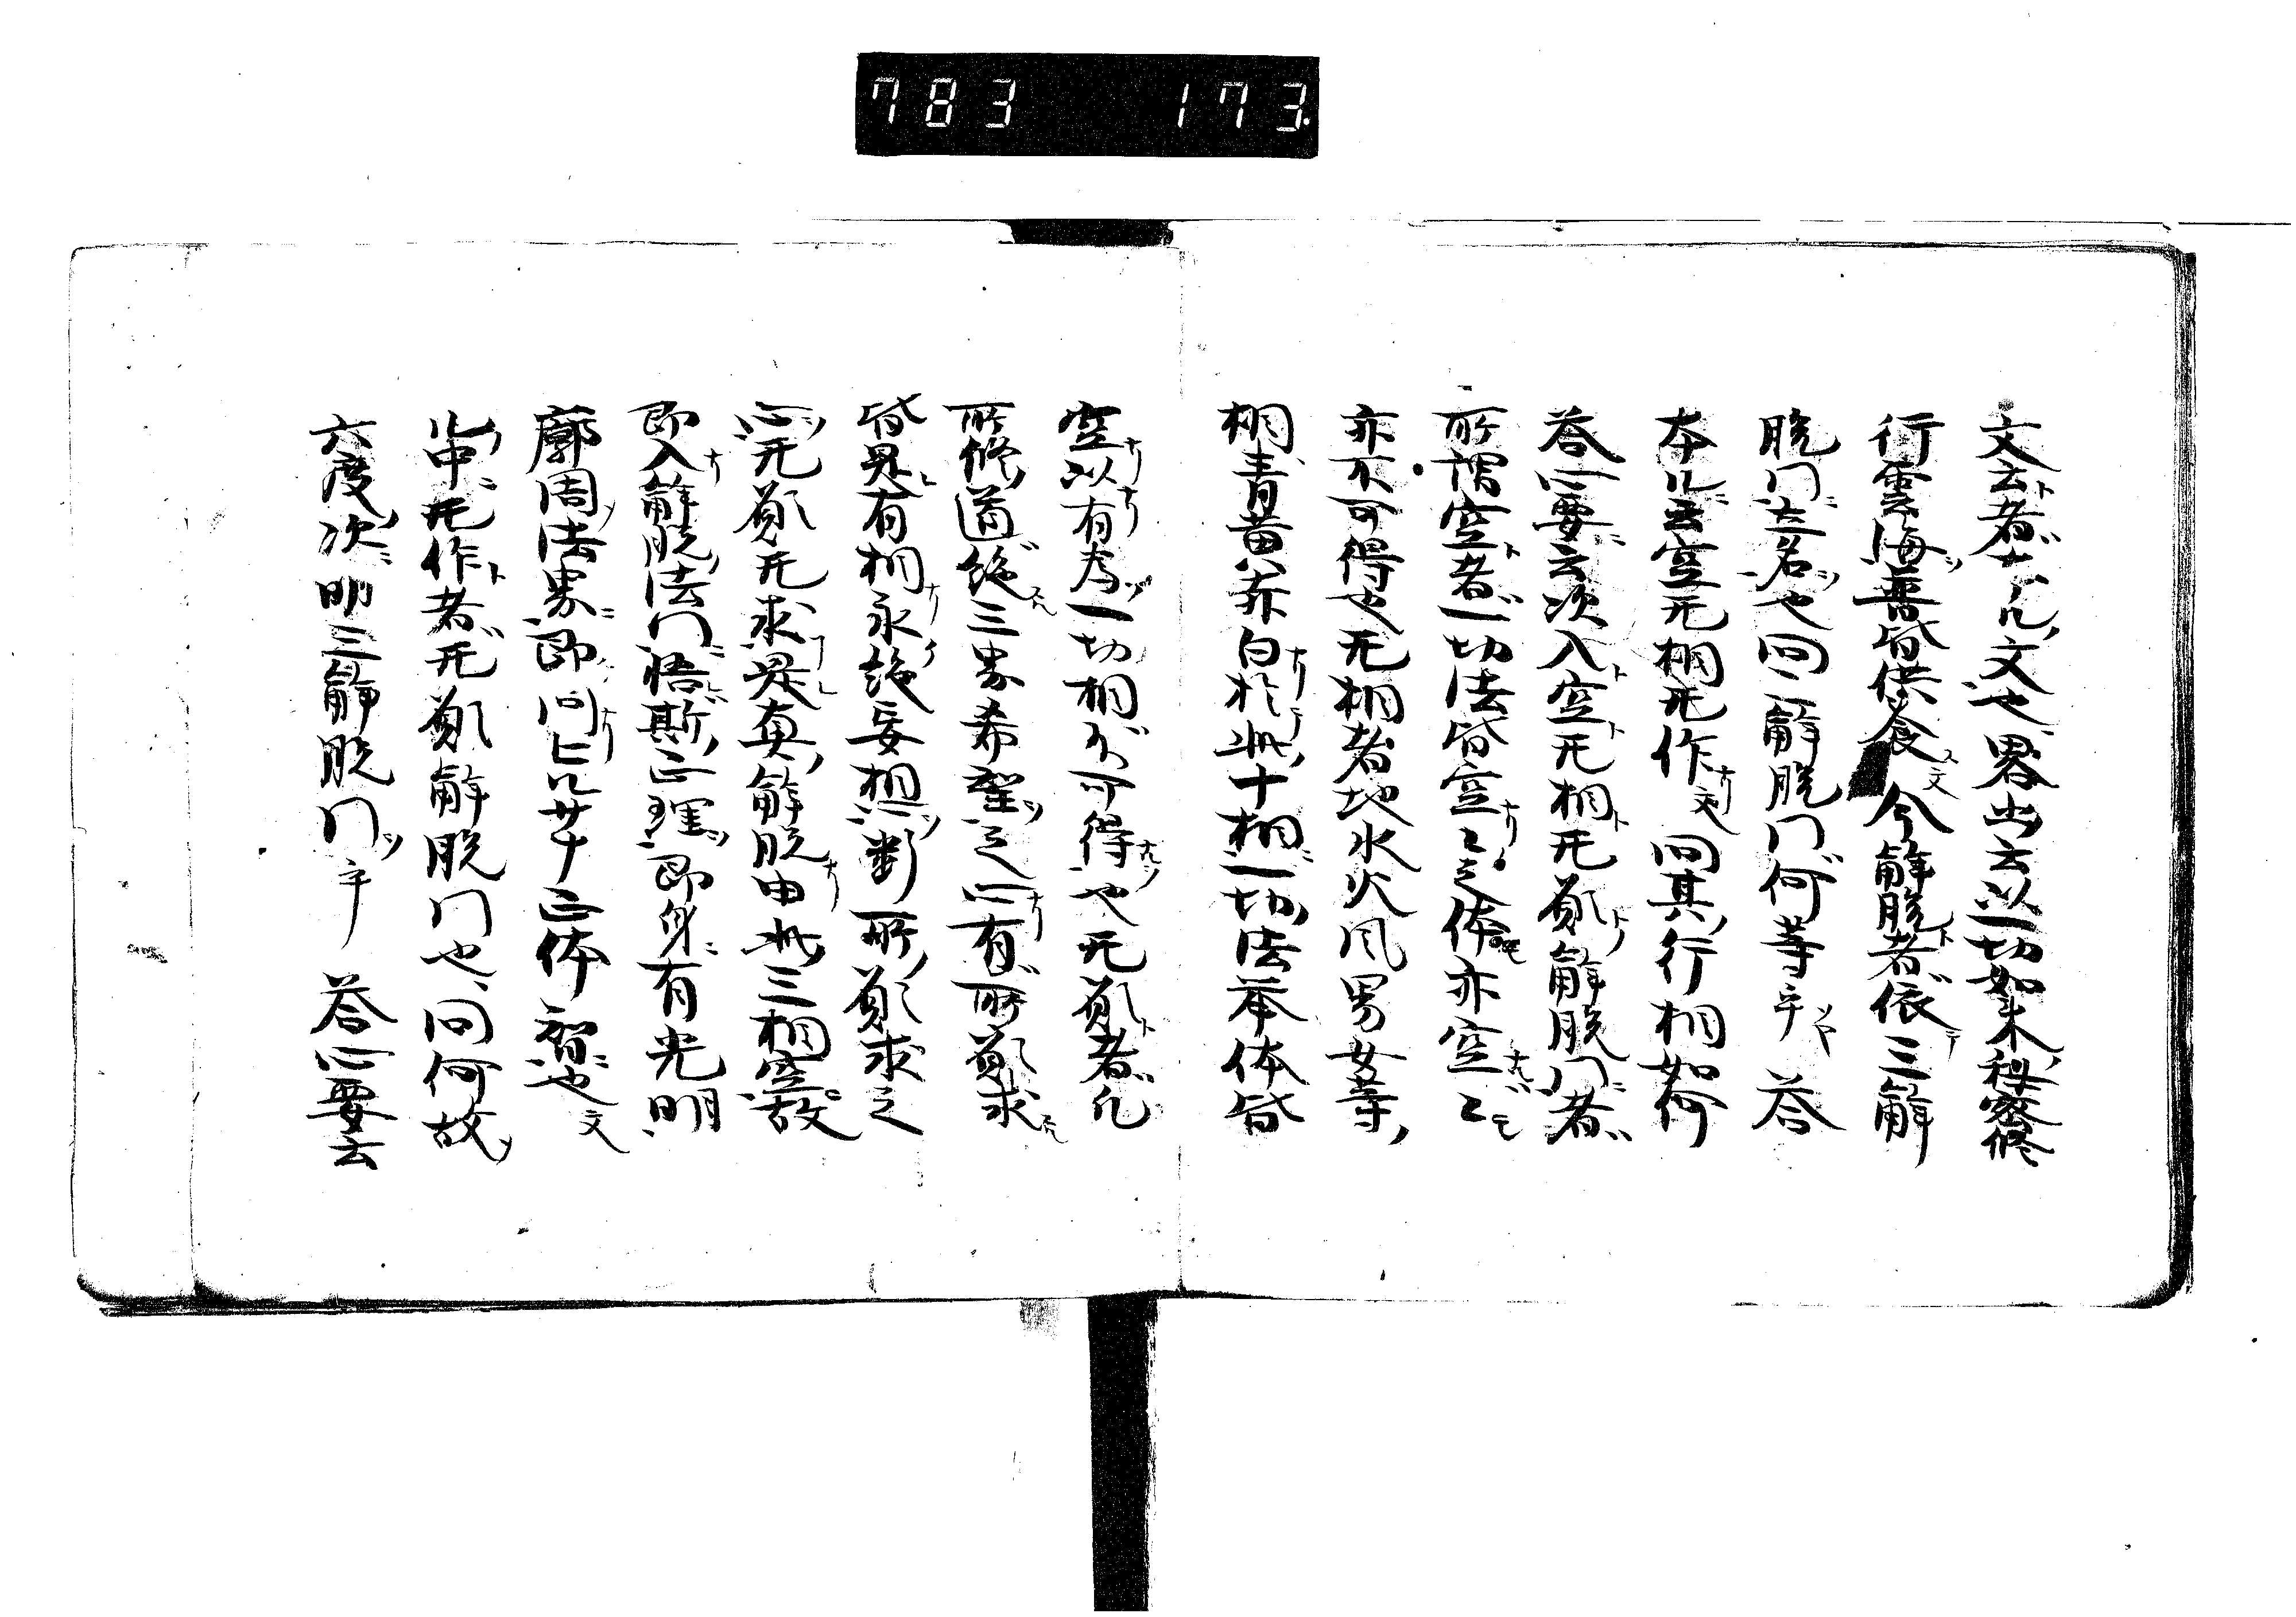 783 173
文云者ナ凡文也畧出云以一切如来秘密修
行雲海普皆供養文 今解脱者依三解
脱門立名也問三解脱門何等乎 答
本凡云空无相无作文 問其行相如何
答心要云次入空无相无願解脱門者
所謂空者一切法皆空ミ之体亦空ミ
亦不可得也无相者地水火風男女等
相青黄赤白於此十相一切法本体皆
空以有為一切相不可得也无願者凡
所修道絶三界希望之心有所願求
皆是有相永絶妄想断所願求之
心无願无求是真解脱由此三相空故
即入解脱法門悟斯正理即身有光明
廓周法界即同凡廿正体智也文
凡中无作者无願解脱門也問何故
六度次明三解脱門乎 答心要云